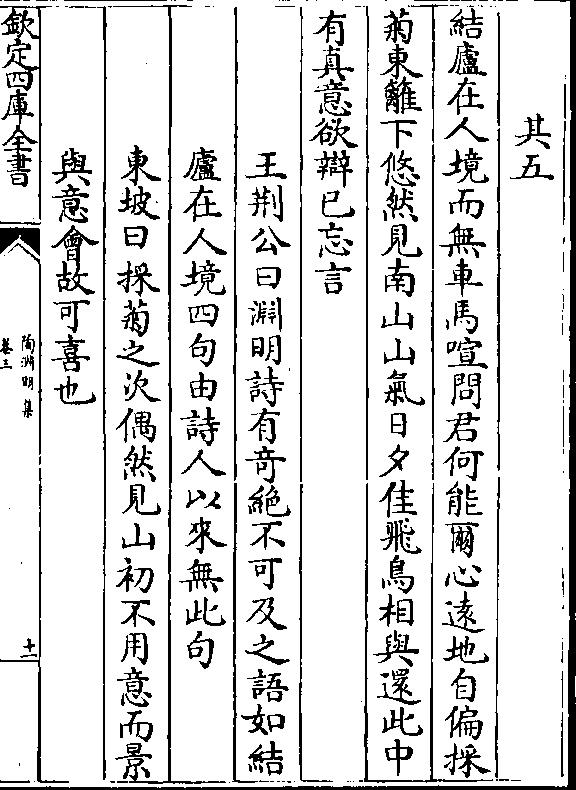 其五
結廬在人境而無車馬喧問君何能爾心逺地自偏採
菊東離下悠然見南山山氣日夕佳飛鳥相與還此中
有真意欲辯已忘言
王荆公曰淵明詩有奇絶不可及之語如結
廬在人境四句由詩人以來無此句
東坡曰採菊之次偶然見山初不用意而景
與意會故可喜也
欽定四庫全書
陶淵明集
卷三
十一